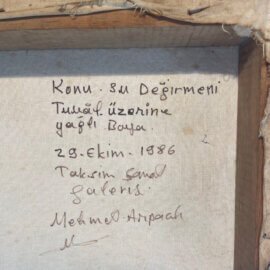 Konu. Su Değirmeni
Tuvâl üzerine
yağlı Boya.
29. Ekim. 1986
Taksim Sanat
galerisi.
Mehmet Arpacık